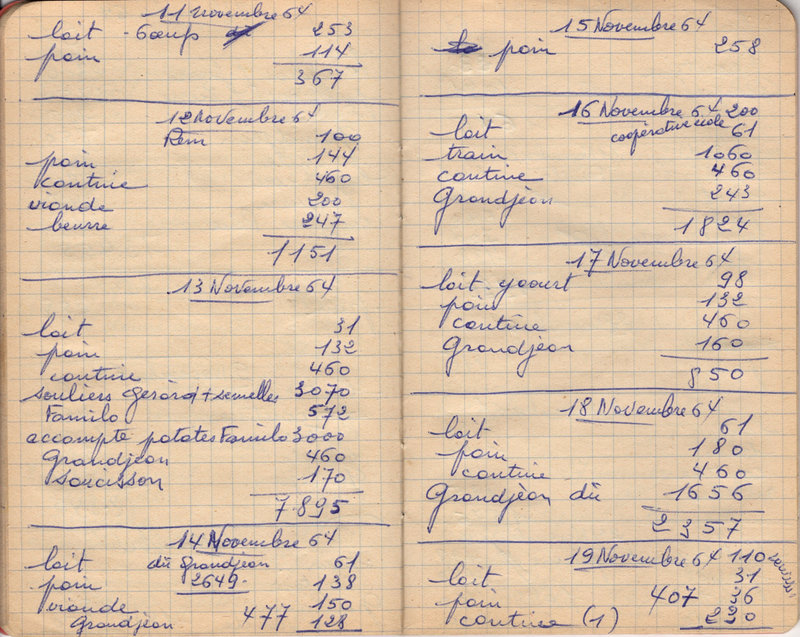 11 Novembre 64
lait - 6 œufs 253
pain 114
367
12 Novembre 64
Rem 100
pain 144
cantine 460
viande 200
beurre 247
1151
13 Novembre 64
lait 31
pain 132
cantine 460
souliers Gérard + semelles 3070
Familo 572
accompte patates Familo 3000
Grandjean 460
saucisson 170
7.895
14 Novembre 64
lait dû Grandjean 61
pain 2649.- 138
viande 150
Grandjean 477 128
15 Novembre 64
pain 258
16 Novembre 64 200
lait coopérative école 61
train 1060
cantine 460
Grandjean 243
1824
17 Novembre 64
lait - yaourt 98
pain 132
cantine 460
Grandjean 160
850
18 Novembre 64
lait 61
pain 180
cantine 460
Grandjean dû 1656
2357
19 Novembre 64 110
lait 31
pain 407 36
cantine (1) 230